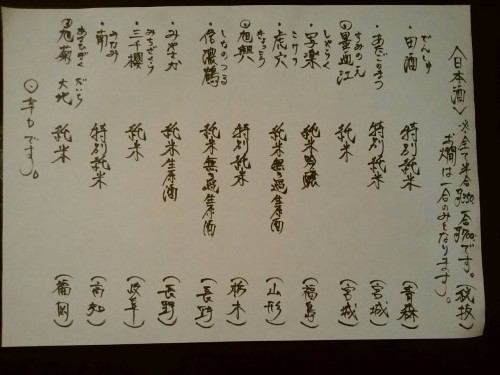 〈日本酒〉※全て半合350 一合700です。(税抜)
お燗は一合のみとなります)。
でんしゅ
・田酒 特別純米 (青森)
・あたごのまつ 特別純米 (宮城)
すみのえ
墨廼江 純米 (宮城)
しゃらく
・写楽 純米吟醸 (福島)
こけつ
・虎穴 純米無過生原酒 (山形)
きょっこう
旭興 特別純米 (栃木)
しなのつる
・信濃鶴 純米無過生原酒 (長野)
・みやさか 純米生原酒 (長野)
みちざくら
・三千櫻 純米 (岐阜)
みなみ
・南 特別純米 (高知)
あさひぎく だいち
旭菊 大地 純米 (福岡)
です。